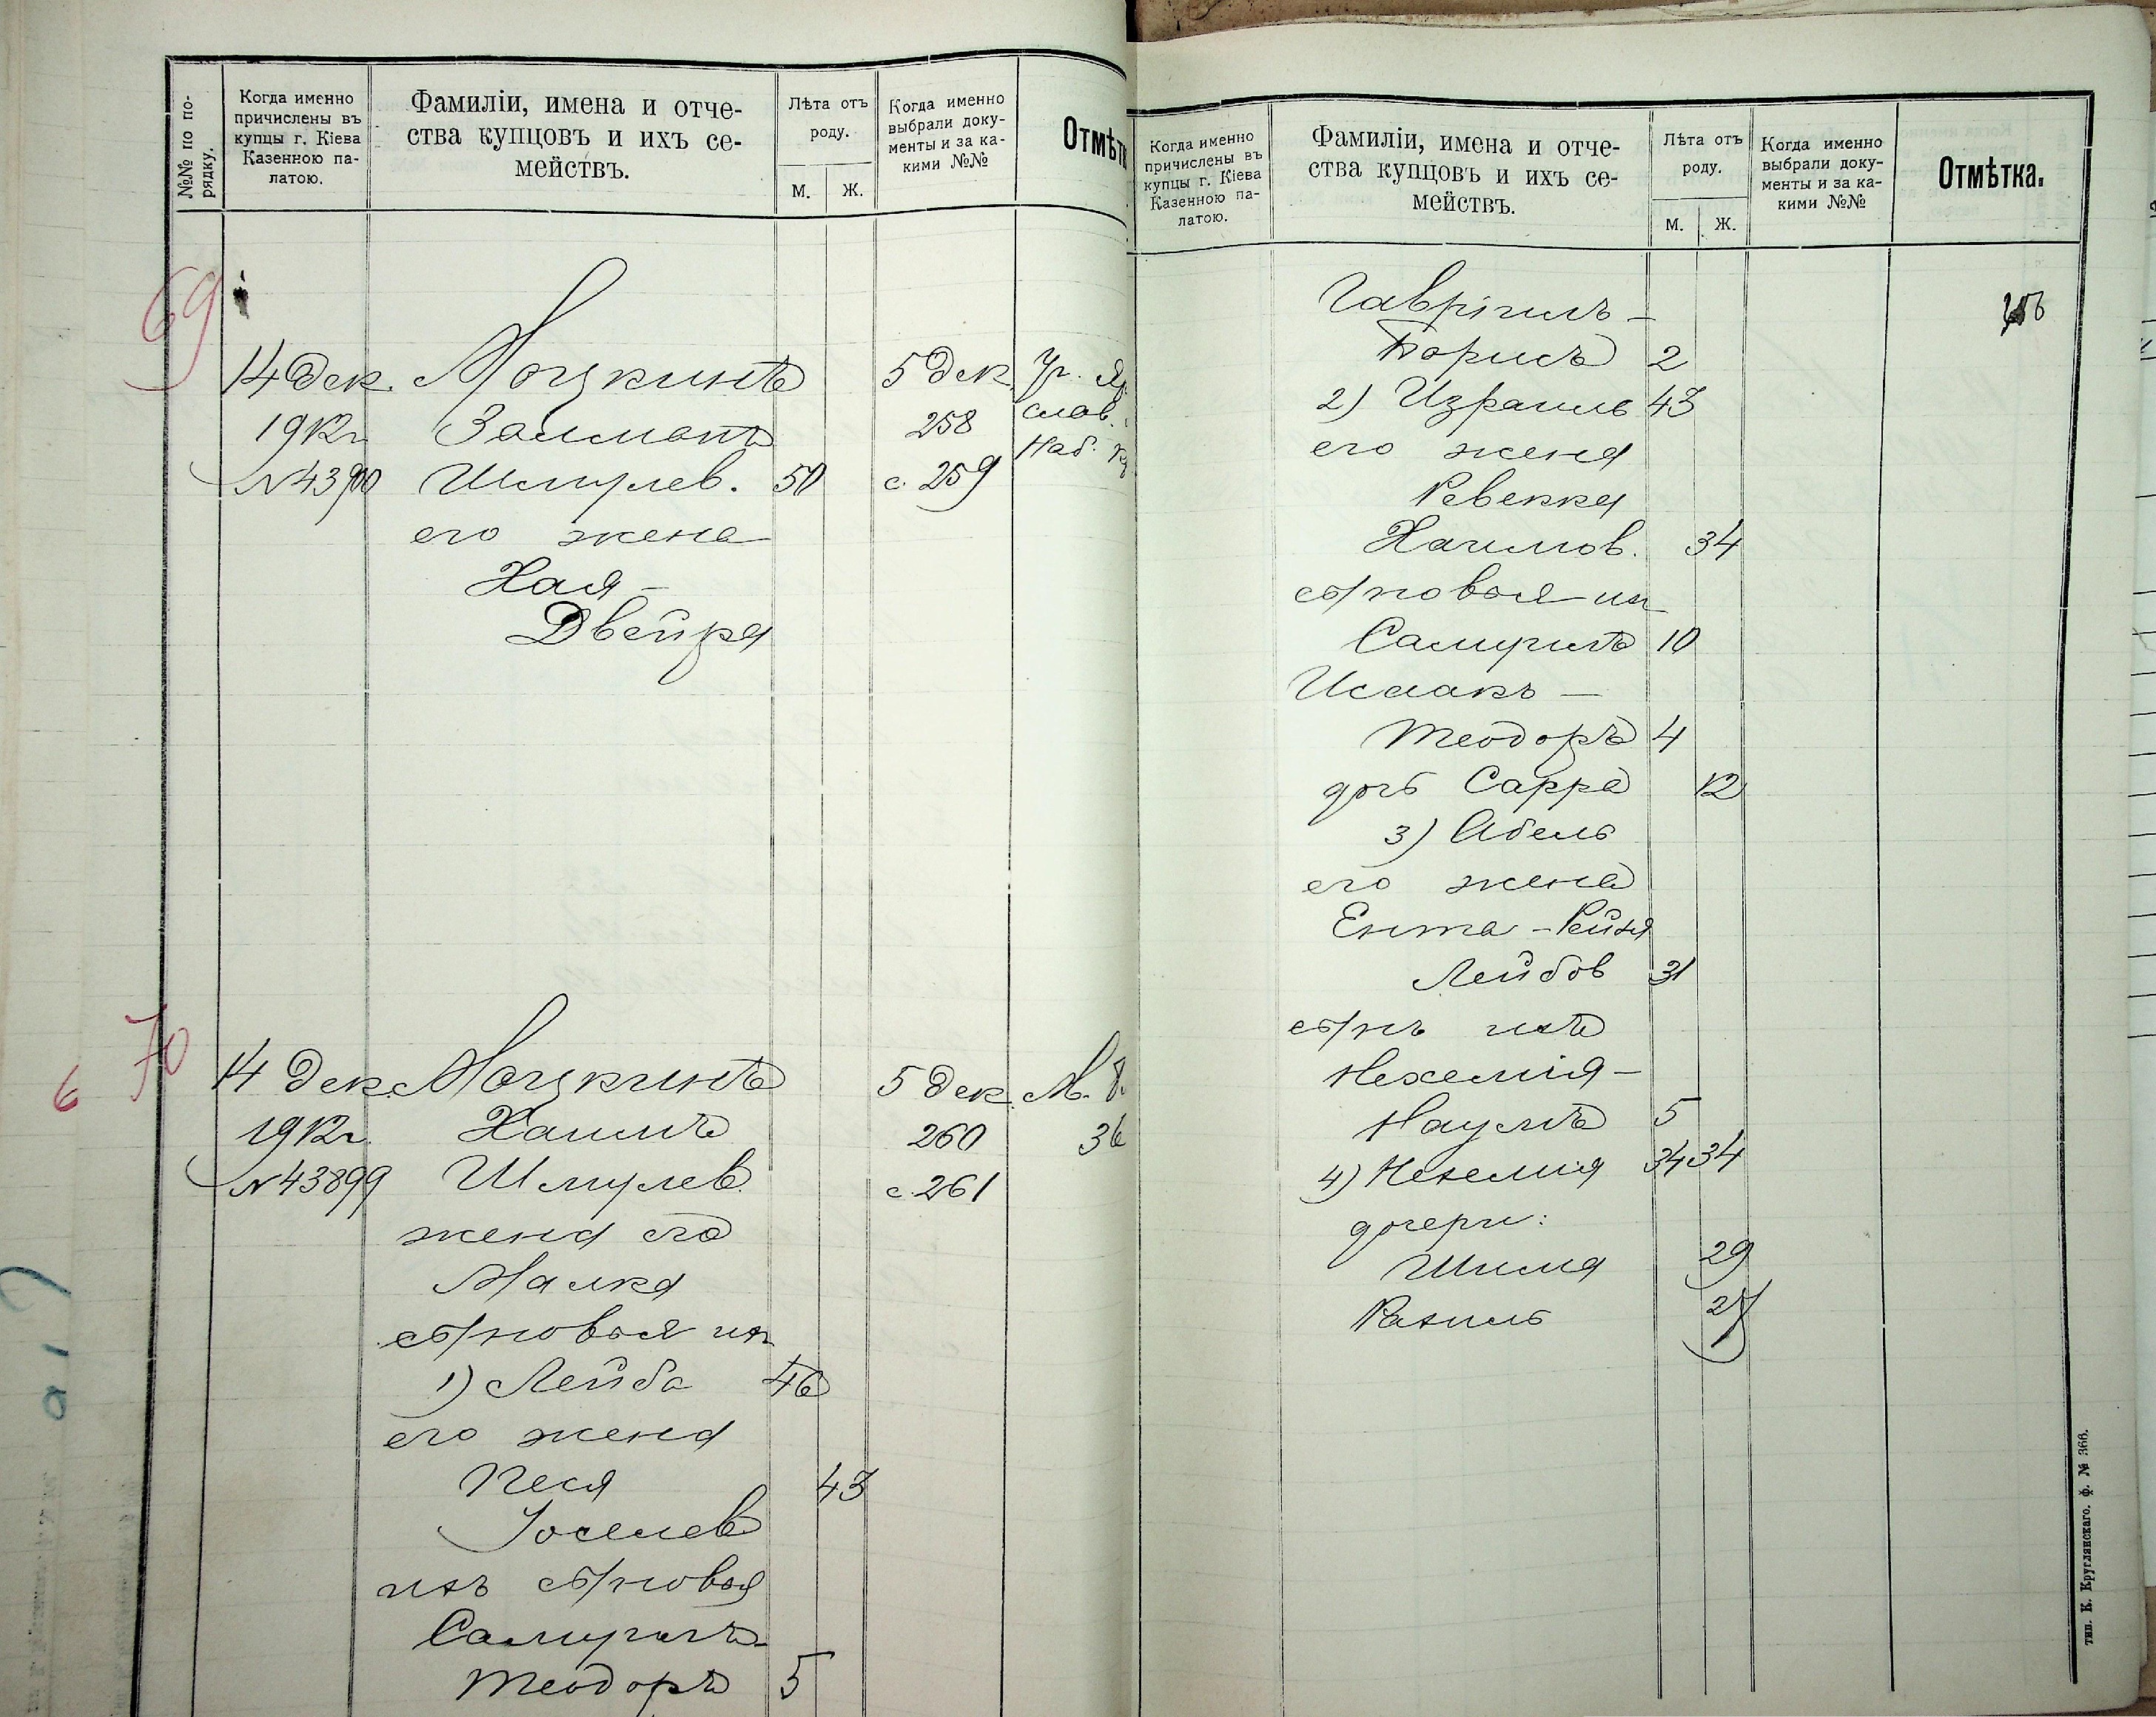 №№ по по-
рядку.
Когда именно
причислены въ
купцы г. Кіева
Казенною па-
латою.
Фамиліи, имена и отче-
ства купцовъ и ихъ се-
мействъ.
Лѣта отъ
роду.
М.
Ж.
Когда именно
выбрали доку-
менты и за ка-
кими №№
Отмѣтк
69
14 Дек.
1912 г.
Моцкинъ
Залманъ
Шмулев. 50
его жена
Хая-
Двейра
5 Дек.
258
с. 259
слав.
Наб.
70
6
14 Дек.
1912 г.
№ 43899
Моцкинъ
Хаимъ
Шмулев.
жена его
Малка
сыновья их
1) Лейба 46
его жена
Песя 43
Иоселев
ихъ сыновья
Самуилъ-
Теодоръ 5
5 Дек.
260
с. 261
М.
36
Когда именно
причислены въ
купцы г. Кіева
Казенною па-
латою.
Фамиліи, имена и отче-
ства купцовъ и ихъ се-
мействъ.
Лѣта отъ
роду.
М.
Ж.
Когда именно
выбрали доку-
менты и за ка-
кими №№
Отмѣтка.
Гавріилъ-
Борисъ 2
2) Израиль 43
его жена
Ревекка
Хаимов. 34
сыновья их
Самуилъ 10
Исаакъ -
Теодоръ 4
дочь Сарра 12
3) Абель
его жена
Ента - Рейзя
Лейбов 31
сынъ ихъ
Нехемія-
Наумъ 5
4) Нехемия 34 34
дочери:
Шима 29
Рахиль 27
тип. К. Круглянскаго. ф. № 366.